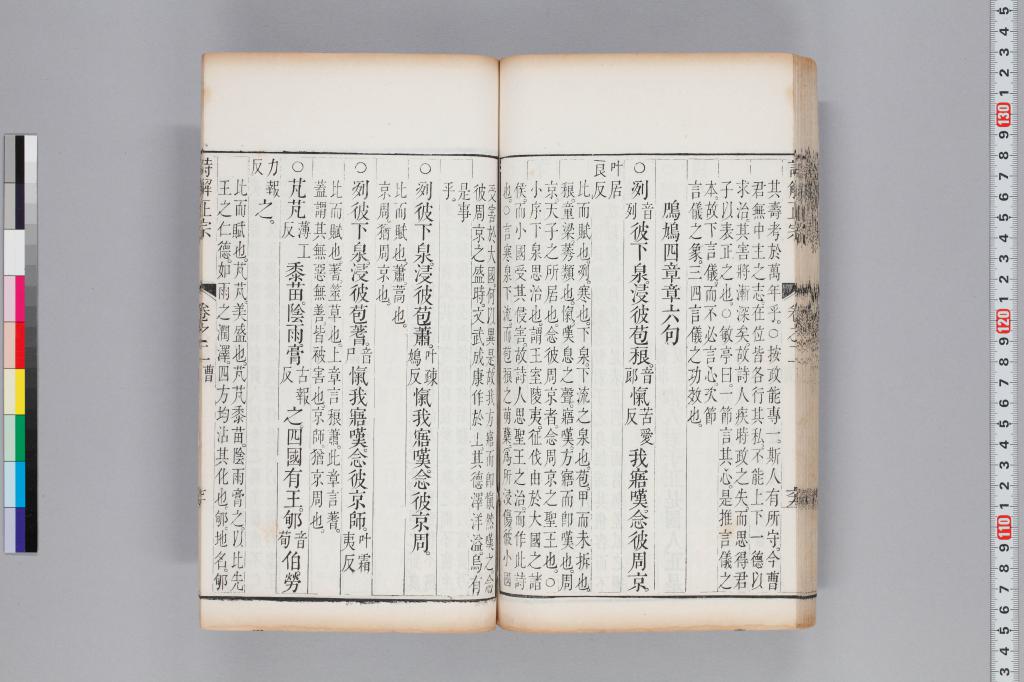 其壽考於萬年乎。○按政能專一。斯人有所守。今曹
君無中主之志。在位皆各行其私。不能上下一德以
求治。其害將漸深矣。故詩人疾時政之失。而思得君
子以表正之也。○敏亭曰。一節言其心。是推言儀之
本。故下言儀。而不必言心。次節
言儀之象。三四言儀之功效也。
鳲鳩四章章六句
○冽音列彼下泉。浸彼苞稂。音郎愾苦愛反我寤嘆。念彼周京。
叶居良反
比而賦也。冽。寒也。下泉。下流之泉也。苞。甲而未拆也。
稂。童粱。莠類也。愾。嘆息之聲。寤嘆。方寤而卽嘆也。周
京。天子之所居也。念彼周京者。念周京之聖王也。○
小序下泉思治也。謂王室陵夷。征伐由於大國之諸
侯。而小國受其侵害。故詩人思聖王之治。而作此詩
也。○言寒泉下流。而苞稂之萌蘖。爲所浸傷。彼小國
受害於大國。何以異是。故我方寤而卽愾然嘆之。念
彼周京之盛時。文武成康作於上。其德澤洋溢。烏有
是事乎。
○冽彼下泉。浸彼苞蕭。叶疎鳩反愾我寤嘆。念彼京周。
比而賦也。蕭。蒿也。
京周。猶周京也。
○冽彼下泉。浸彼苞蓍。音尸愾我寤嘆。念彼京師。叶霜夷反
比而賦也。蓍。筮草也。上章言稂蕭。此章言蓍。
蓋謂其無惡無善皆被害也。京師。猶京周也。
○芃芃薄工反黍苗。陰雨膏古報反之。四國有王。郇音荀伯勞
力報反之。
比而賦也。芃芃。美盛也。芃芃黍苗。陰雨膏之。以比先
王之仁德。如雨之潤澤。四方均沾其化也。郇。地名。郇
詩解正宗
卷之二 曹